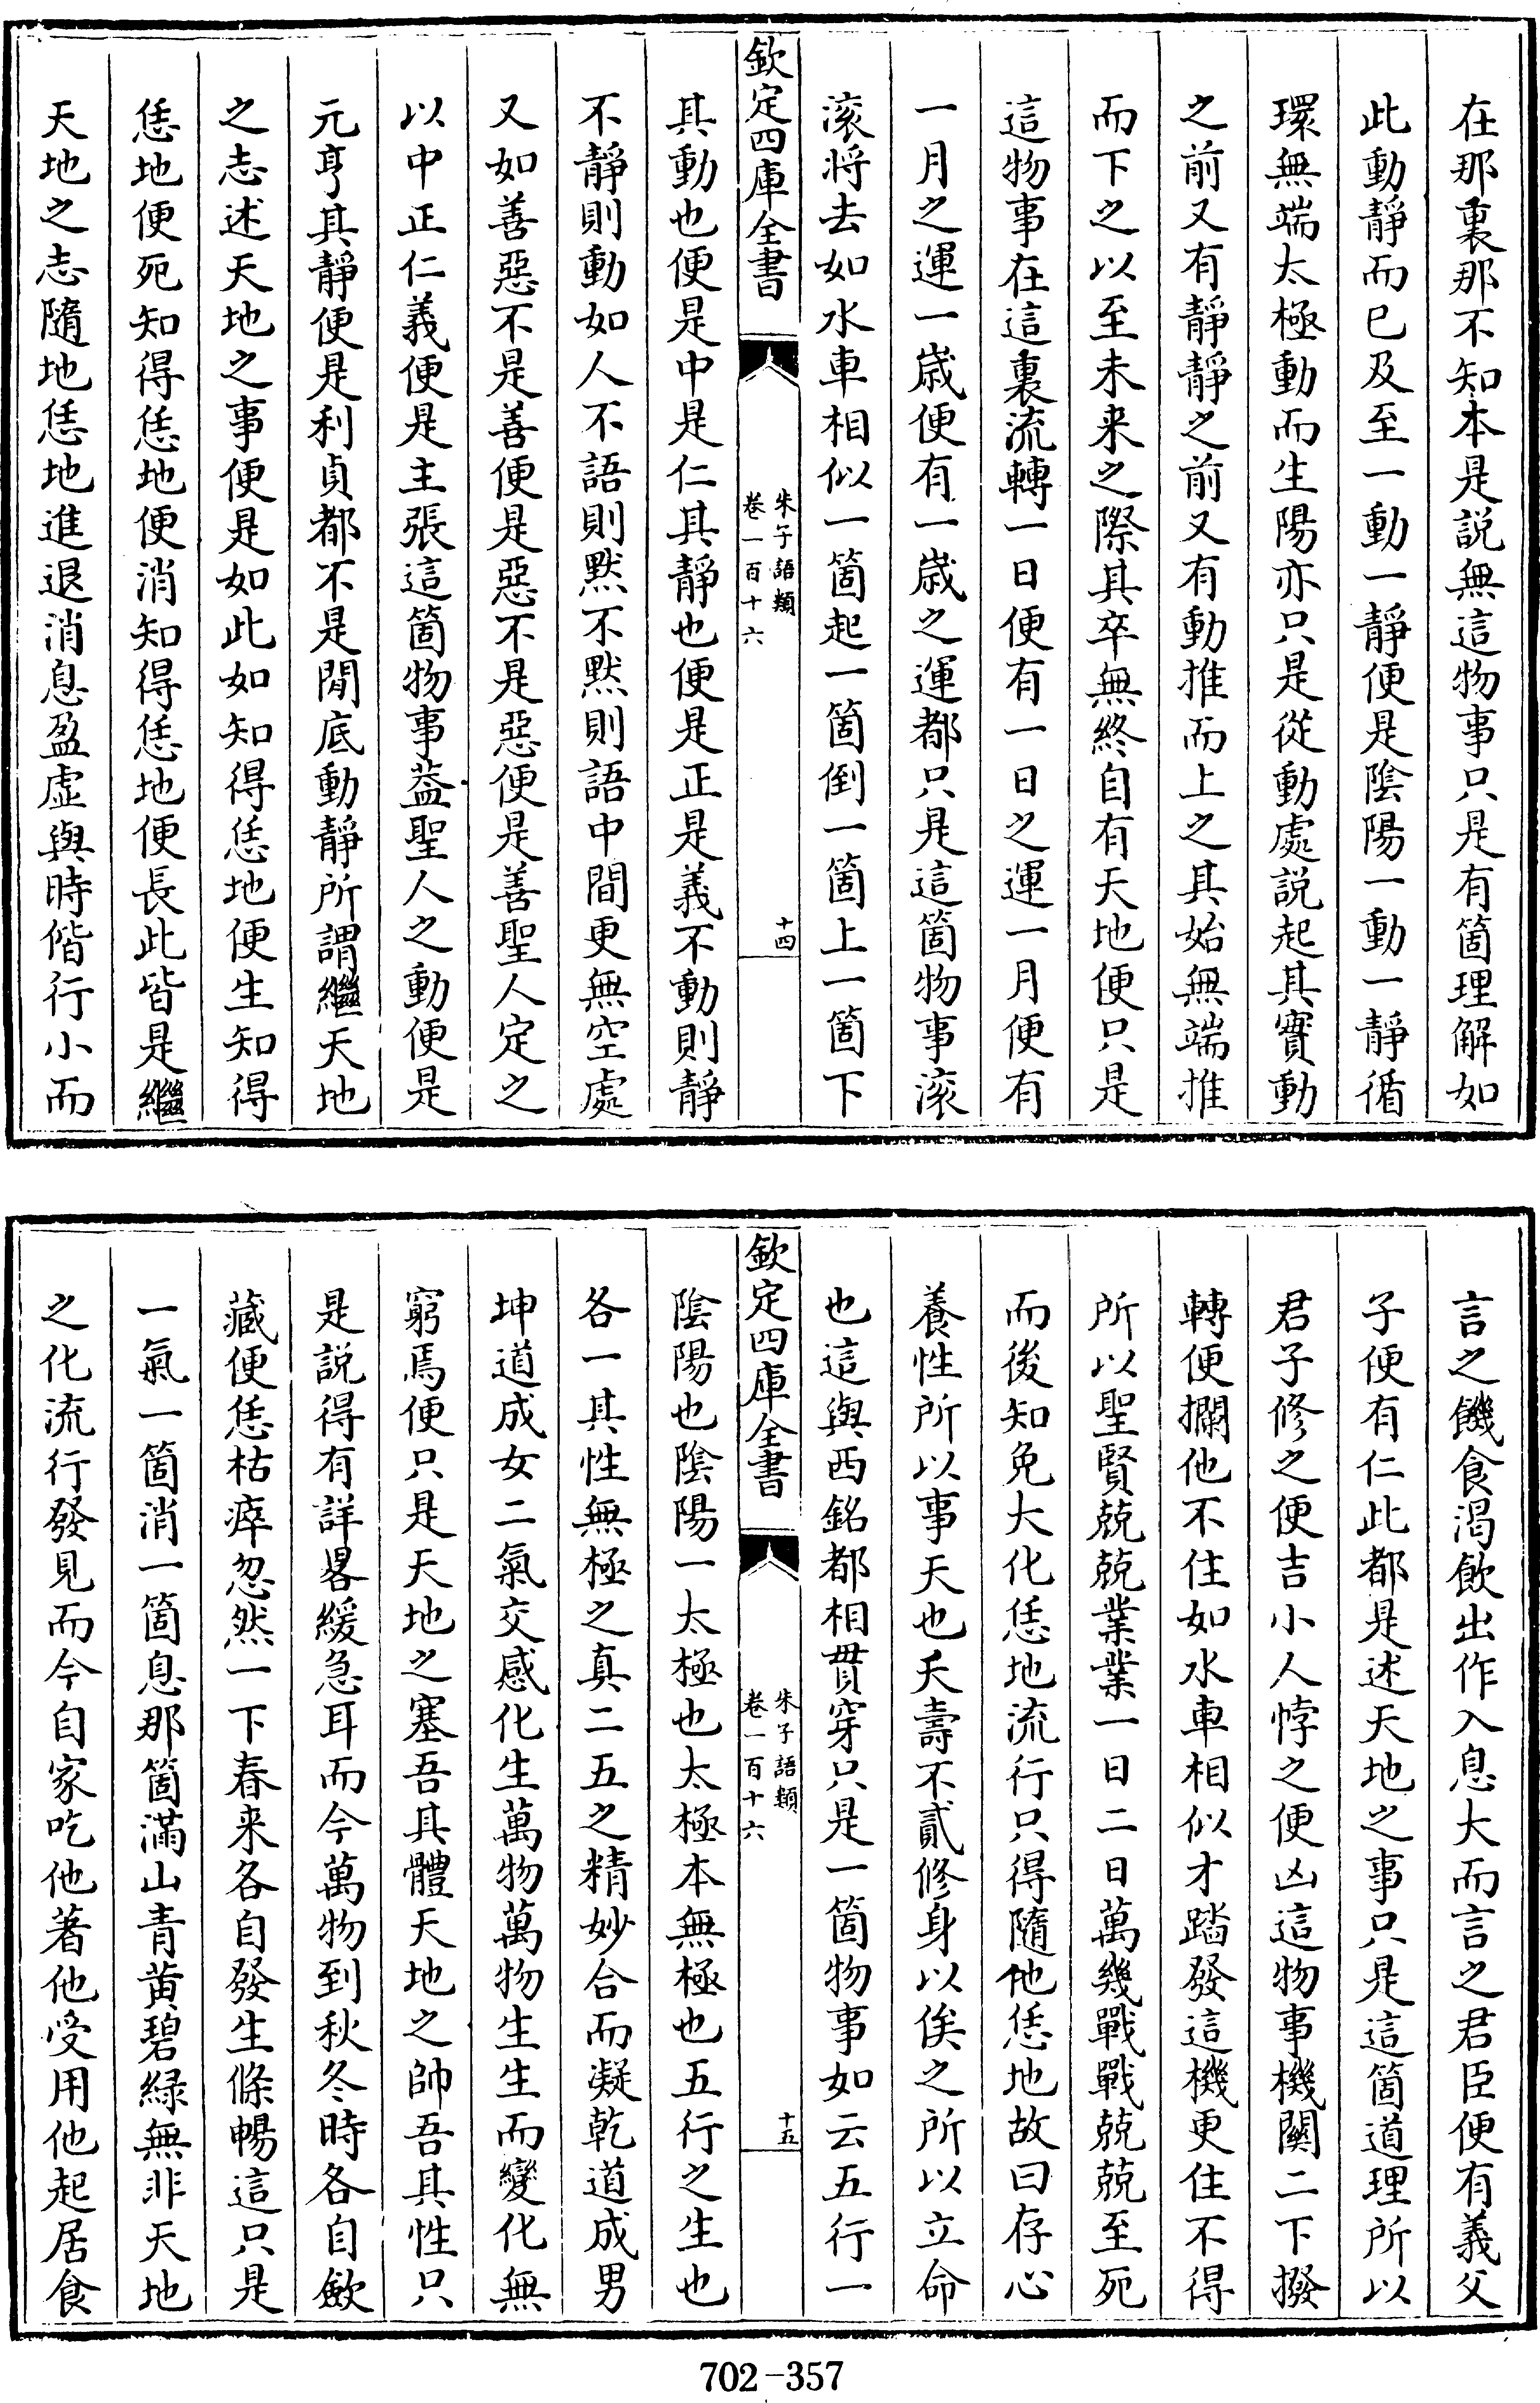 在那裏那不知本是説無這物事只是有箇理解如
此動靜而已及至一動一靜便是陰陽一動一靜循
環無端太極動而生陽亦只是從動處説起其實動
之前又有靜靜之前又有動推而上之其始無端推
而下之以至未来之際其卒無終自有天地便只是
這物事在這裏流轉一日便有一日之運一月便有
一月之運一歳便有一歳之運都只是這箇物事滚
滚将去如水車相似一箇起一箇倒一箇上一箇下
欽定四庫全書
朱子語類
卷一百十六
十四
其動也便是中是仁其靜也便是正是義不動則靜
不靜則動如人不語則黙不黙則語中間更無空處
又如善惡不是善便是惡不是惡便是善聖人定之
以中正仁義便是主張這箇物事葢聖人之動便是
元亨其靜便是利貞都不是閒底動靜所謂繼天地
之志述天地之事便是如此如知得恁地便生知得
恁地便死知得恁地便消知得恁地便長此皆是繼
天地之志隨地恁地進退消息盈虛與時偕行小而
言之饑食渴飲出作入息大而言之君臣便有義父
子便有仁此都是述天地之事只是這箇道理所以
君子修之便吉小人悖之便凶這物事機關一下撥
轉便攔他不住如水車相似才踏發這機更住不得
所以聖賢兢兢業業一日二日萬幾戰戰兢兢至死
而後知免大化恁地流行只得隨他恁地故曰存心
養性所以事天也夭壽不貳修身以俟之所以立命
也這與西銘都相貫穿只是一箇物事如云五行一
欽定四庫全書
朱子語類
卷一百十六
十五
陰陽也陰陽一太極也太極本無極也五行之生也
各一其性無極之真二五之精妙合而凝乾道成男
坤道成女二氣交感化生萬物萬物生生而變化無
窮焉便只是天地之塞吾其體天地之帥吾其性只
是説得有詳畧緩急耳而今萬物到秋冬時各自斂
藏便恁枯瘁忽然一下春来各自發生條暢這只是
一氣一箇消一箇息那箇滿山青黄碧緑無非天地
之化流行發見而今自家吃他著他受用他起居食
702-357